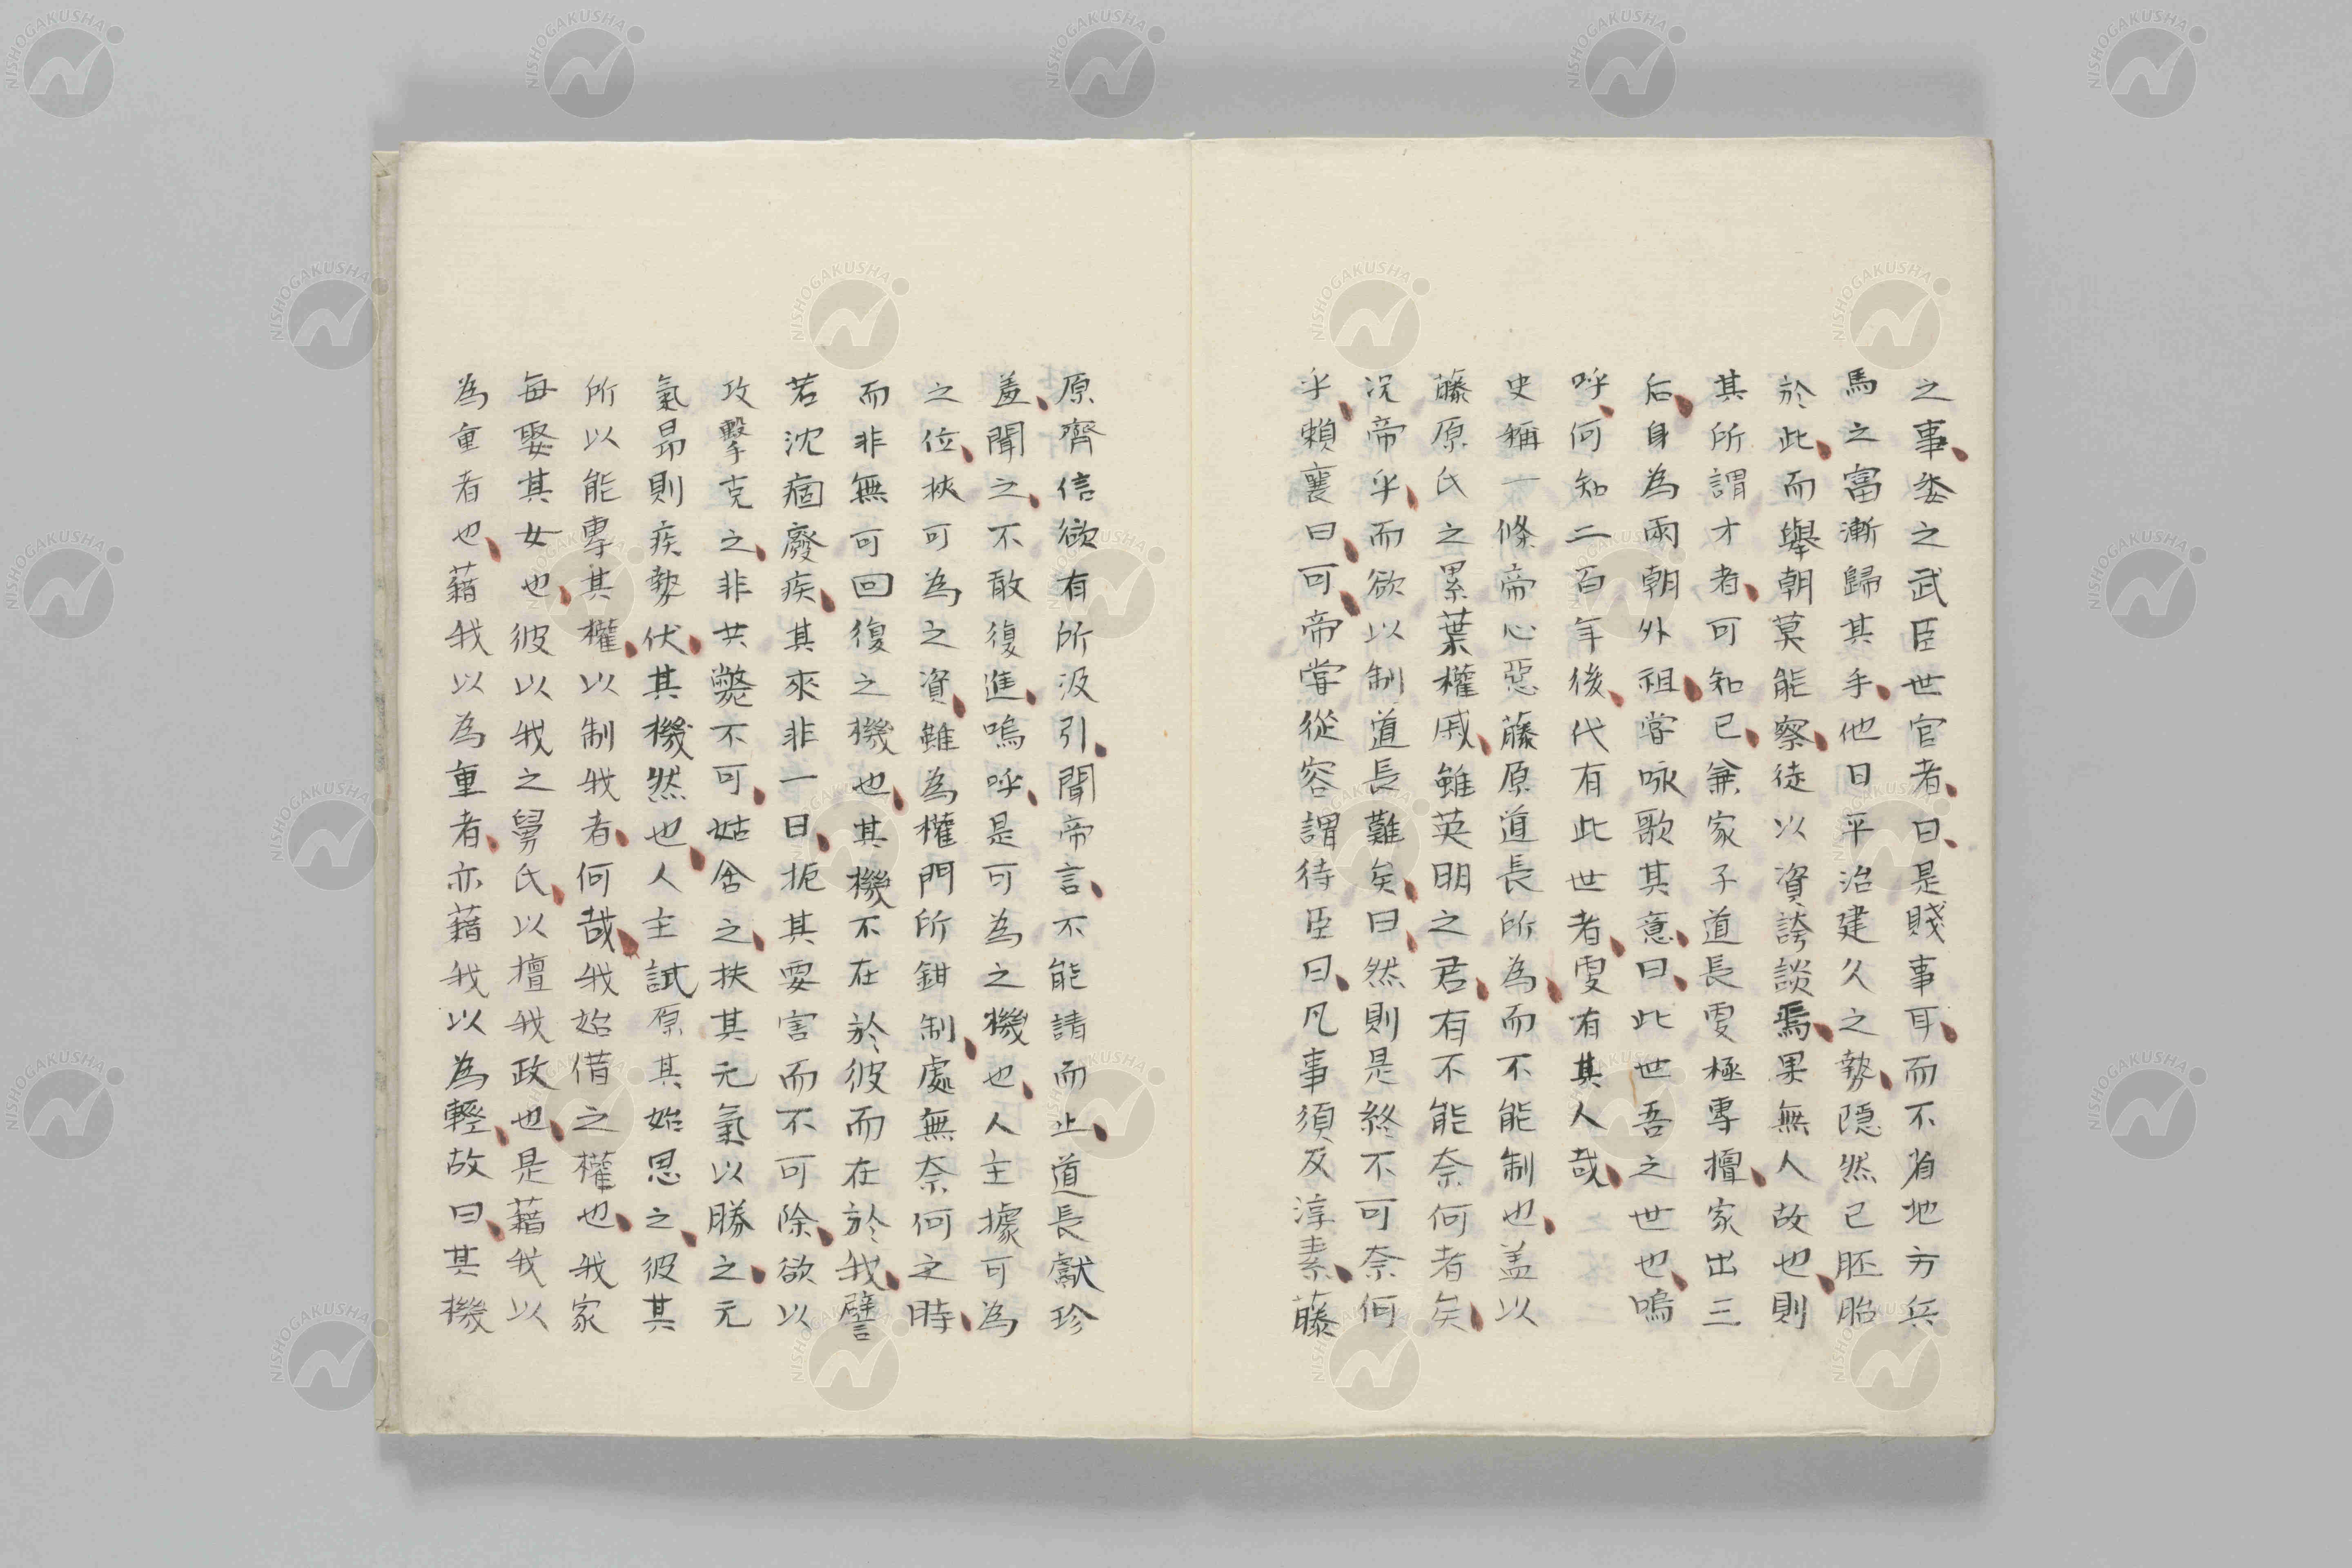 之事委之武臣世官者曰是賤事耳而不省地方兵
馬之富漸歸其手他日平治建久之勢隱然已胚胎
於此而舉朝莫能察徒以資誇談焉果無人故也則
其所謂才者可知已兼家子道長更極專擅家出三
后身為兩朝外祖嘗咏歌其意曰此世吾之世也嗚
呼何知二百年後代有此世者更有其人哉
史稱一條帝心惡藤原道長所為而不能制也盖以
藤原氏之累葉權戚雖英明之君有不能奈何者矣
況帝乎而欲以制道長難矣曰然則是終不可奈何
乎賴襄曰可帝嘗從容謂待臣曰凡事須反淳素藤
原齊信欲有所汲引聞帝言不能請而止道長獻珍
盖聞之不敢復進嗚呼是可為之機也人主據可為
之位挾可為之資雖為權門所鉗制處無奈何之時
而非無可回復之機也其機不在於彼而在於我譬
若沈痼廢疾其來非一日扼其要害而不可除欲以
攻擊克之非共斃不可姑舍之扶其元氣以勝之元
氣昂則疾勢伏其機然也人主試原其始思之彼其
所以能專其權以制我者何哉我始借之權也我家
每娶其女也彼以我之舅氏以擅我政也是藉我以
為重者也藉我以為重者亦藉我以為輕故曰其機